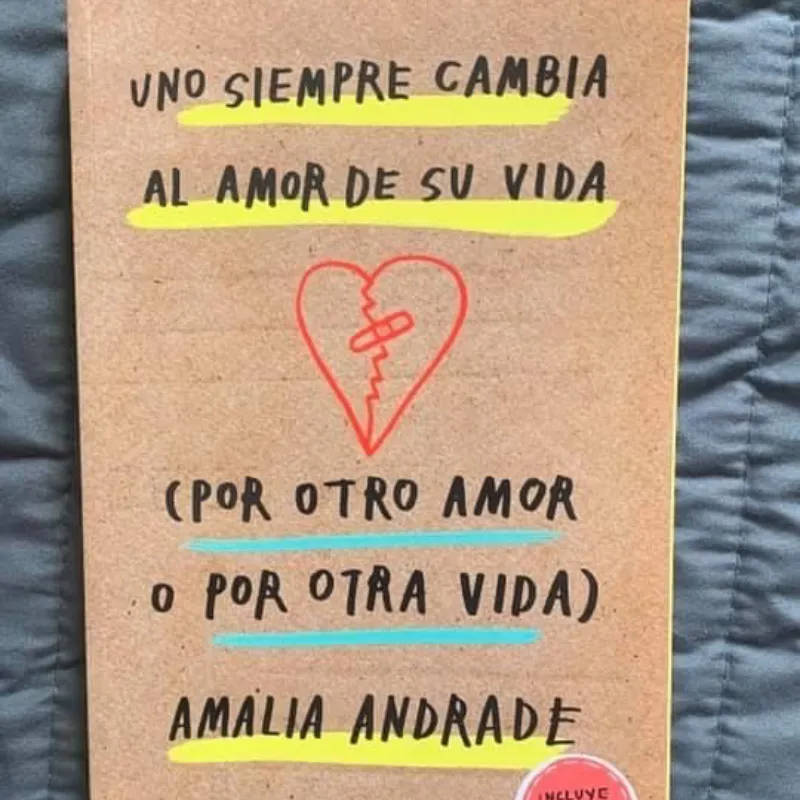 UNO SIEMPRE CAMBIA
AL AMOR DE SU VIDA
(POR OTRO AMOR
O POR OTRA VIDA)
AMALIA ANDRADE
INCLUYE